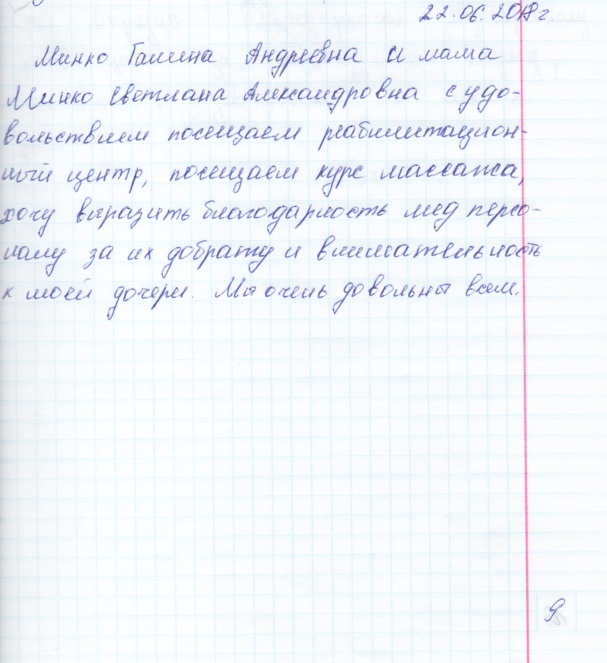 22.06.2018г.
Минко Галина Андреевна и мама
Минко Светлана Александровна с удо-
вольствием посещаем реабилитацион-
ный центр, посещаем курс массажа,
хочу выразить благодарность мед персо-
налу за их доброту и внимательность
к моей дочери. Мы очень довольны всем.
9